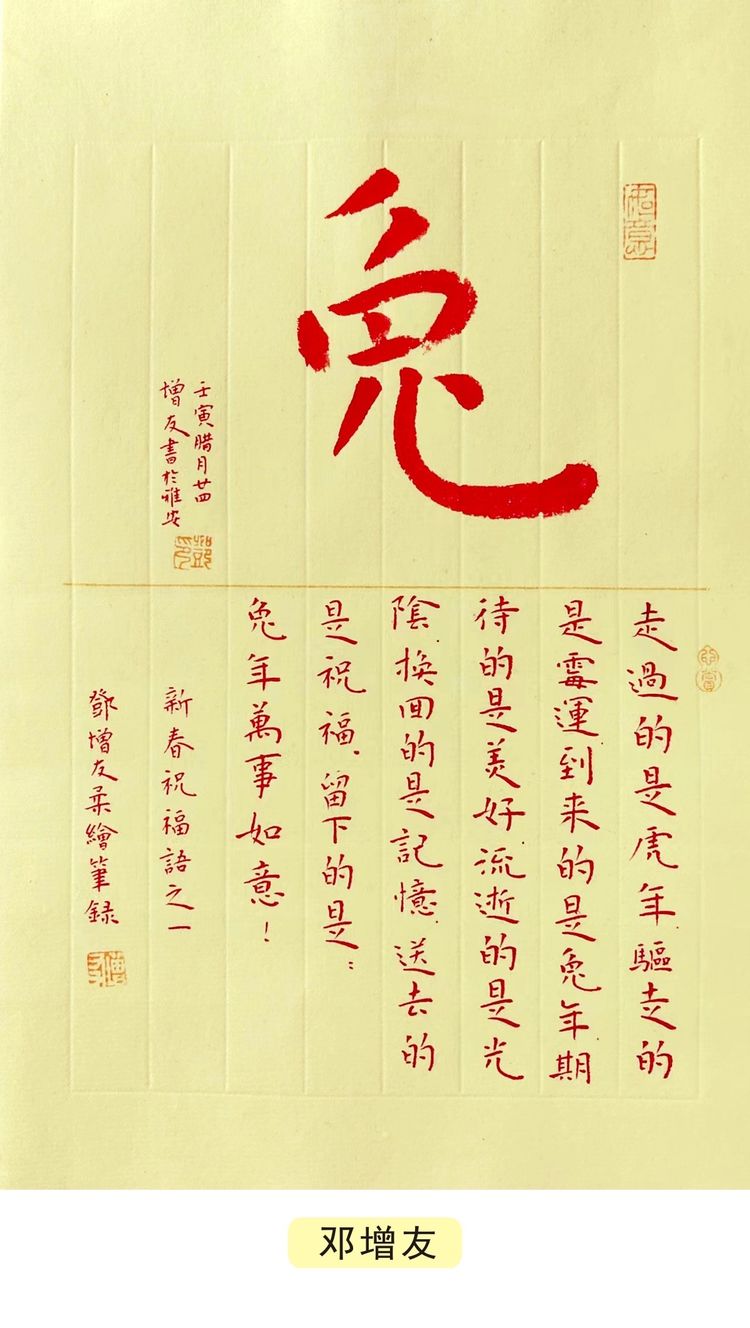 如意
兔
壬寅腊月廿四
增友書於雅安
走過的是虎年.驅走的
是霉運.到来的是兔年.期
待的是美好.流逝的是光
陰.換回的是記憶.送去的
是祝福.留下的是：
兔年萬事如意！
新春祝福語之一
鄧增友
繪筆録
邓增友